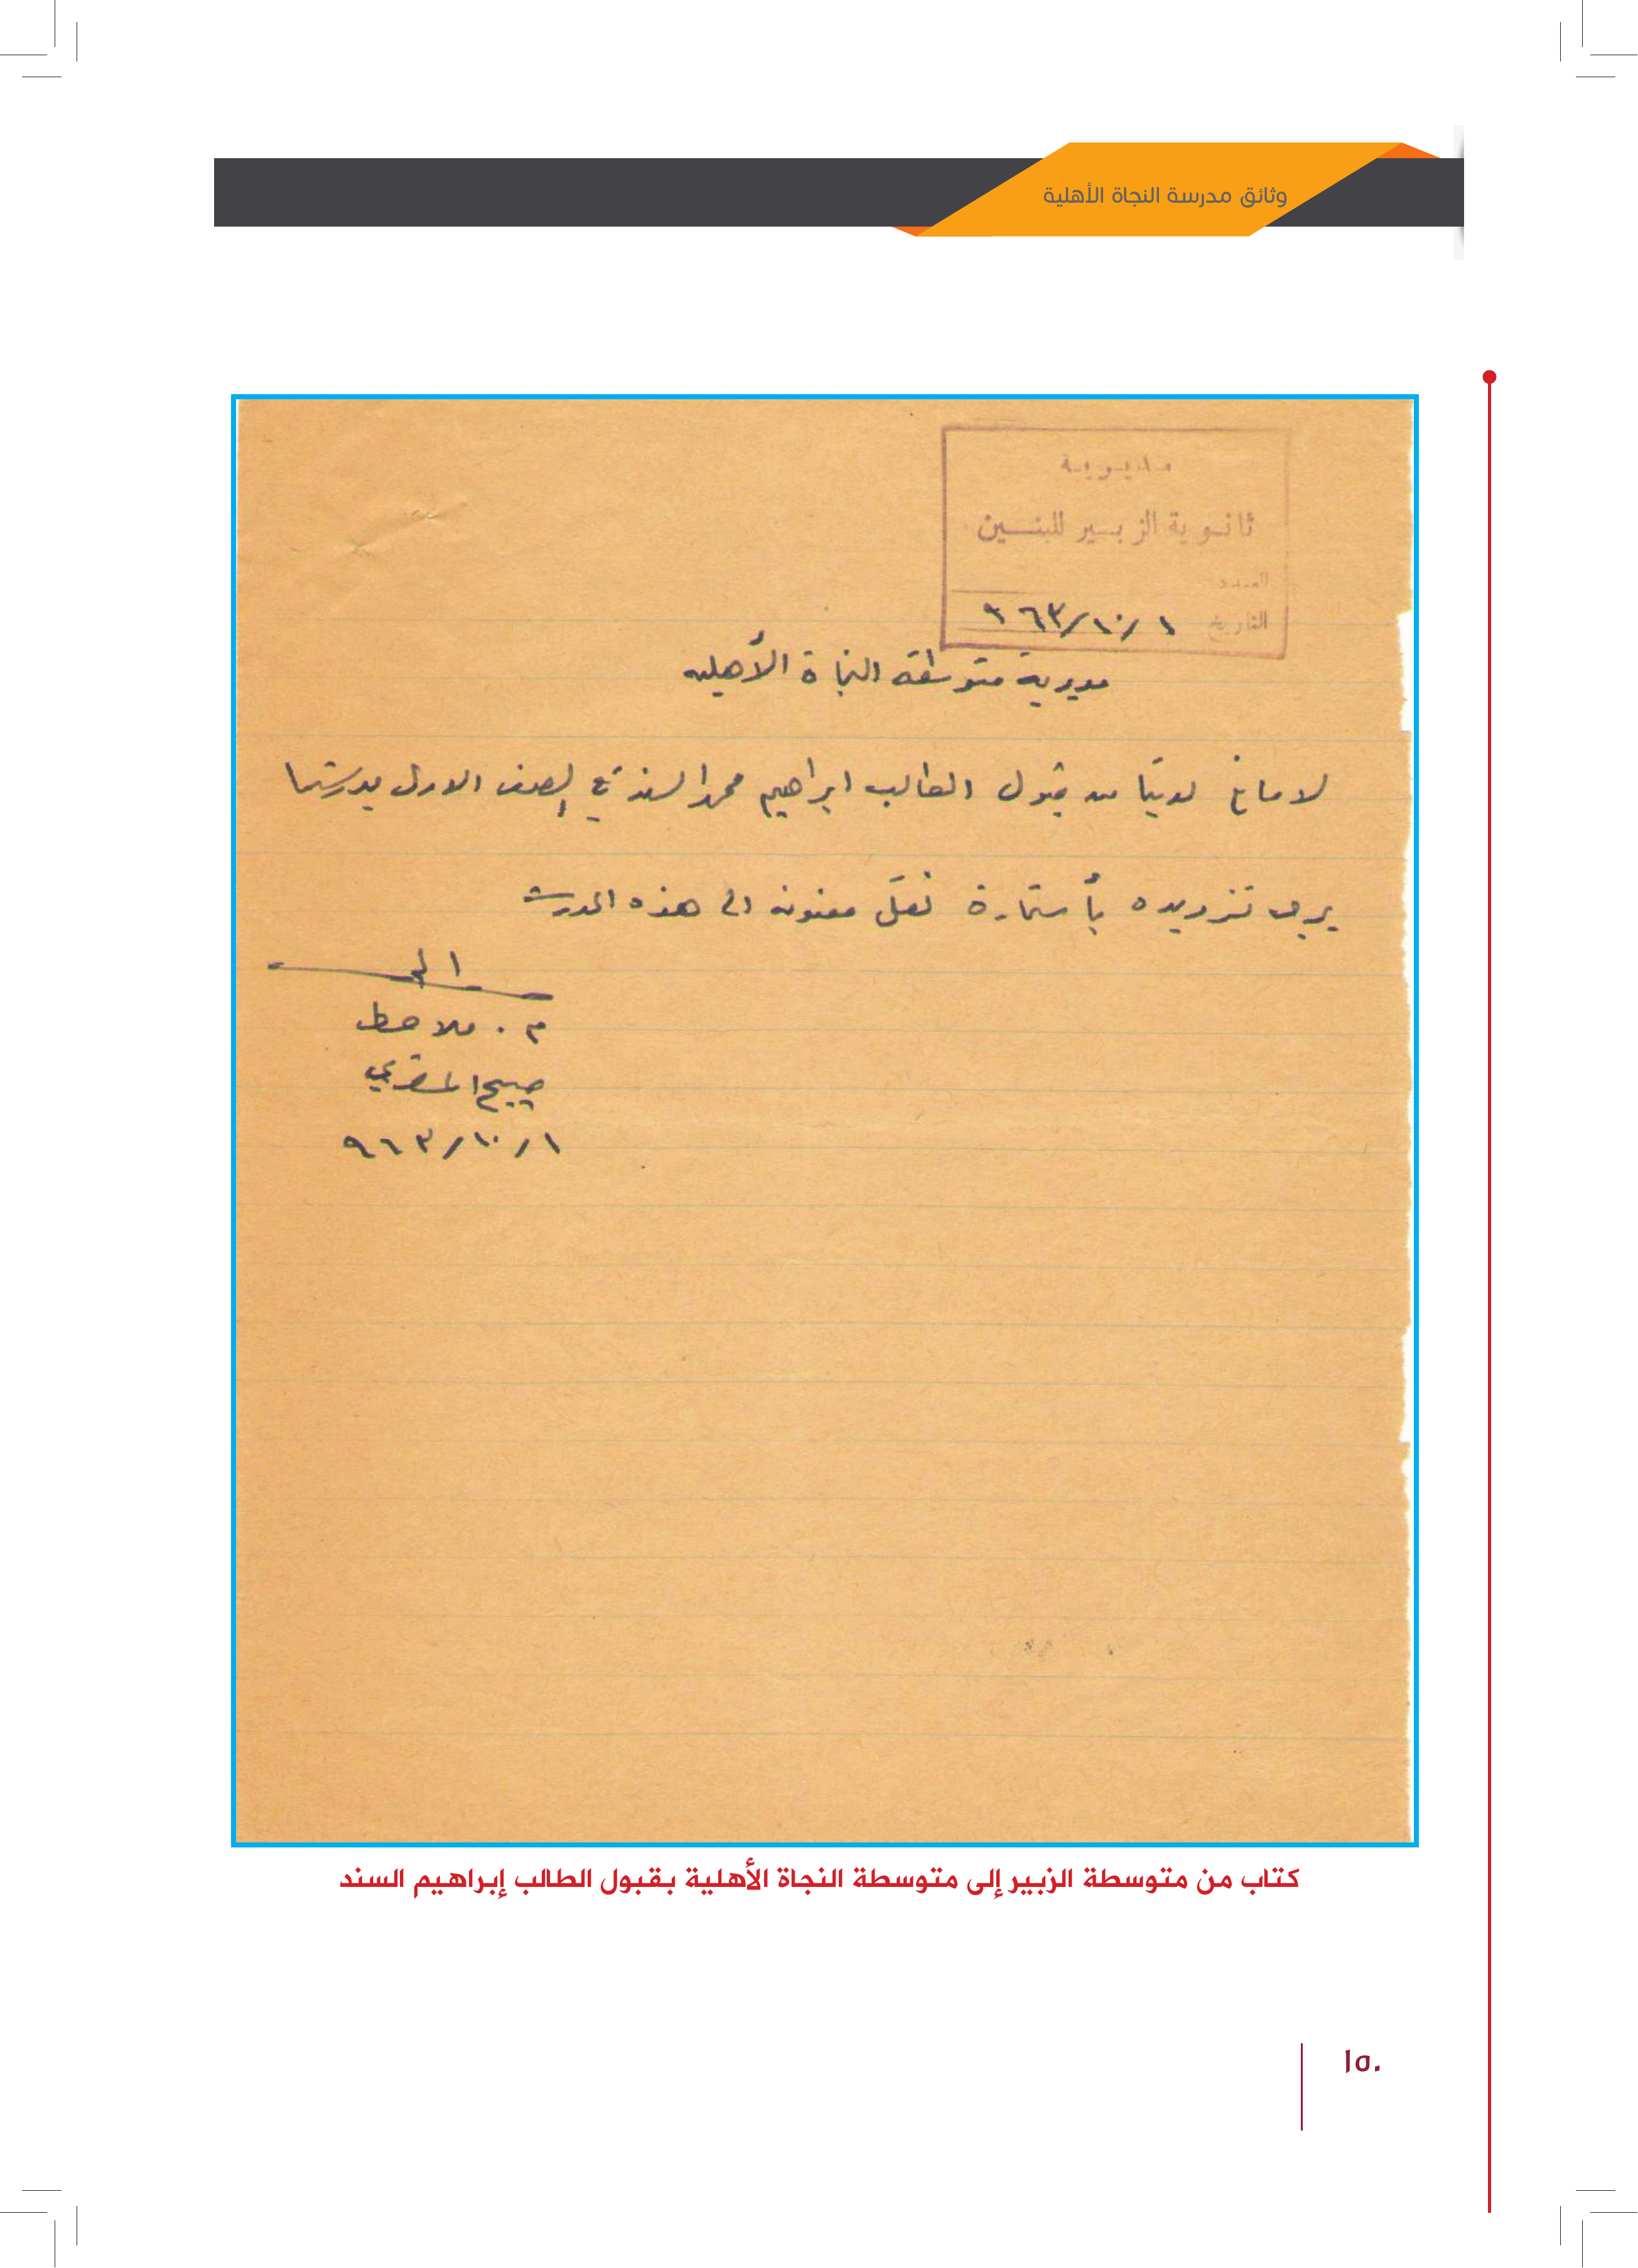 وثائق مدرسة النجاة الأهلية
مديرية
ثانوية الزبير للبنين
العدد
التاريخ ١/١٠/٩٦٣
مديرية متوسطة النجاة الأهلية
لا مانع لدينا من قبول الطالب ابراهيم محمد السند في الصف الاول بمدرستنا
يرجى تزويده بأستمارة نقل معنونه الى هذه المدرسة
م. ملاحظ
صبيح
١/١٠/٩٦٣
كتاب من متوسطة الزبير إلى متوسطة النجاة الأهلية بقبول الطالب إبراهيم السند
١٥٠